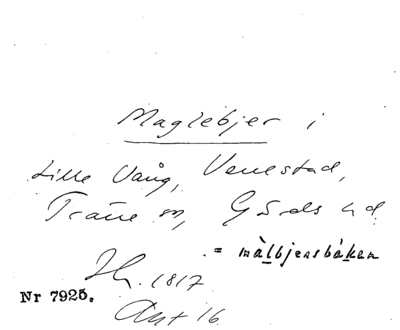 Maglebjer i
Lille Vång, Venestad,
Träne sn, Gärds hd
= màlbjersbáken
Jh. 1817
Nr 7925.
Ant 16